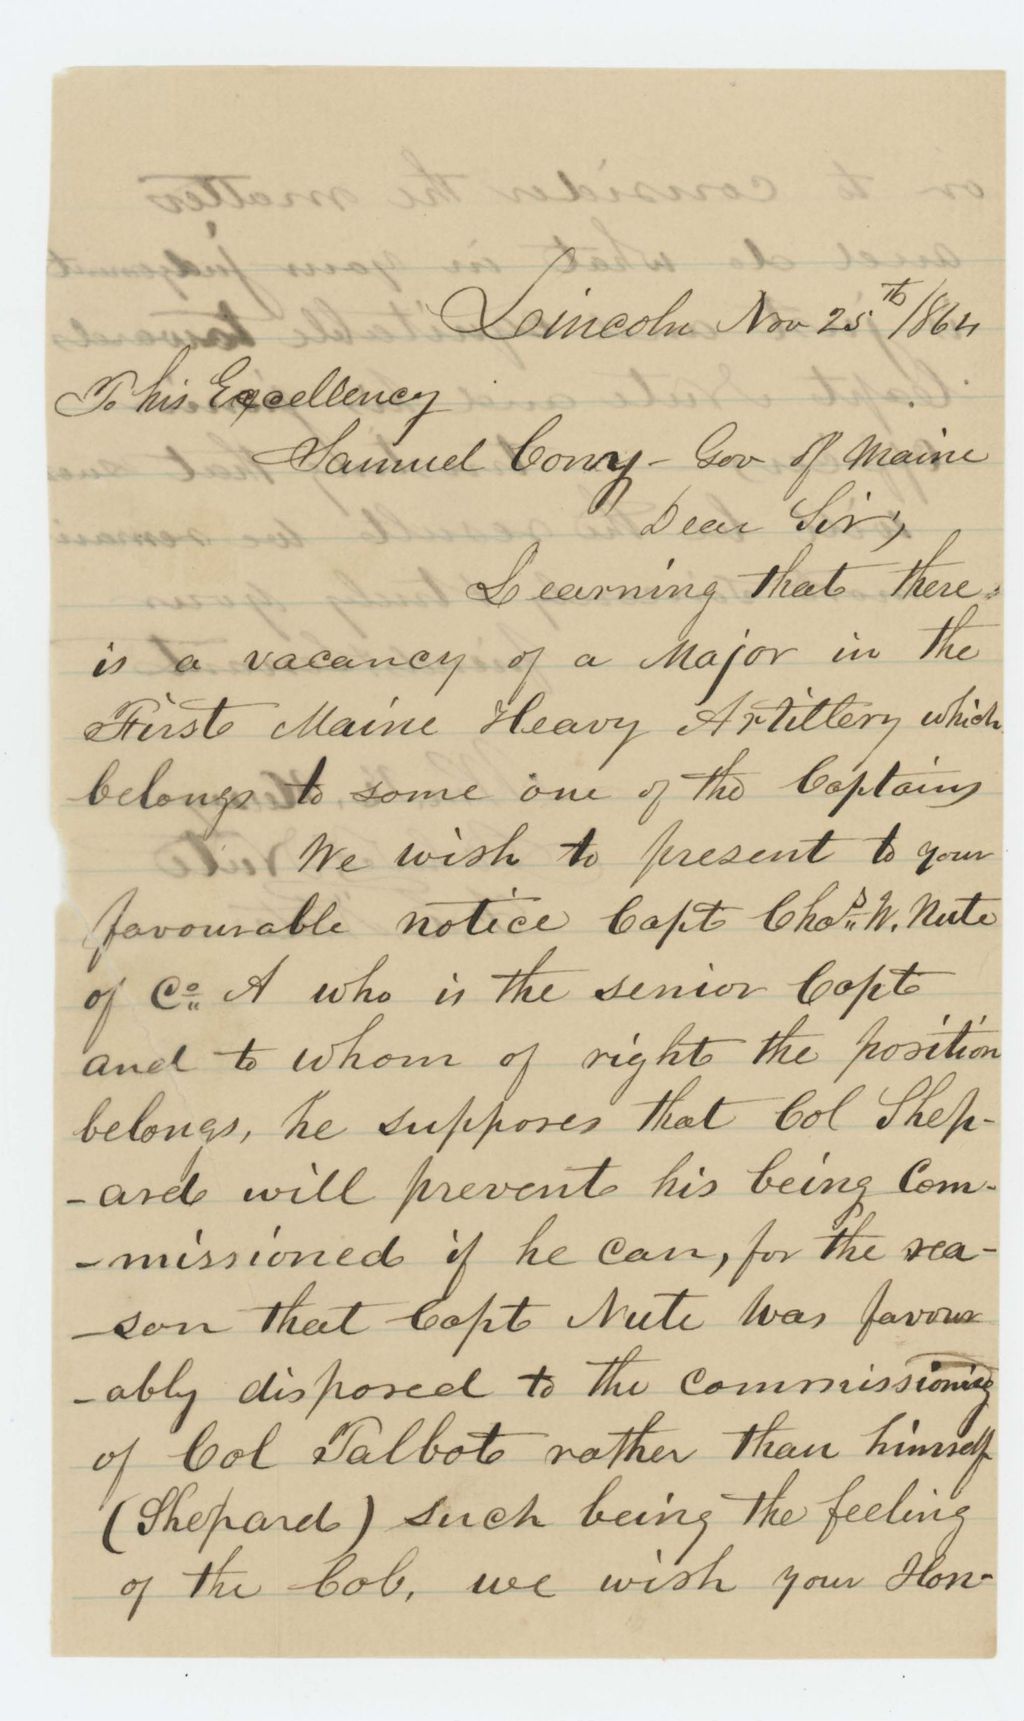 Lincoln Nov 25th /864
To his Excellency
Samuel Cony - Gov of Maine
Dear Sir,
Learning that there
is a vacancy of a Major in the
First Maine Heavy Artillery which
belongs to some one of the Captains
We wish to present to your
favourable notice Capt Chas. W. Nute
of Co. A who is the senior Capt
and to whom of right the position
belongs, he supposes that Col Shep-
-ard will prevent his being Com-
-missioned if he can, for the rea-
-son that Capt Nute was favour
-ably disposed to the commissioning
of Col Talbot rather than himself
(Shepard) such being the feeling
of the Col, we wish your Hon-